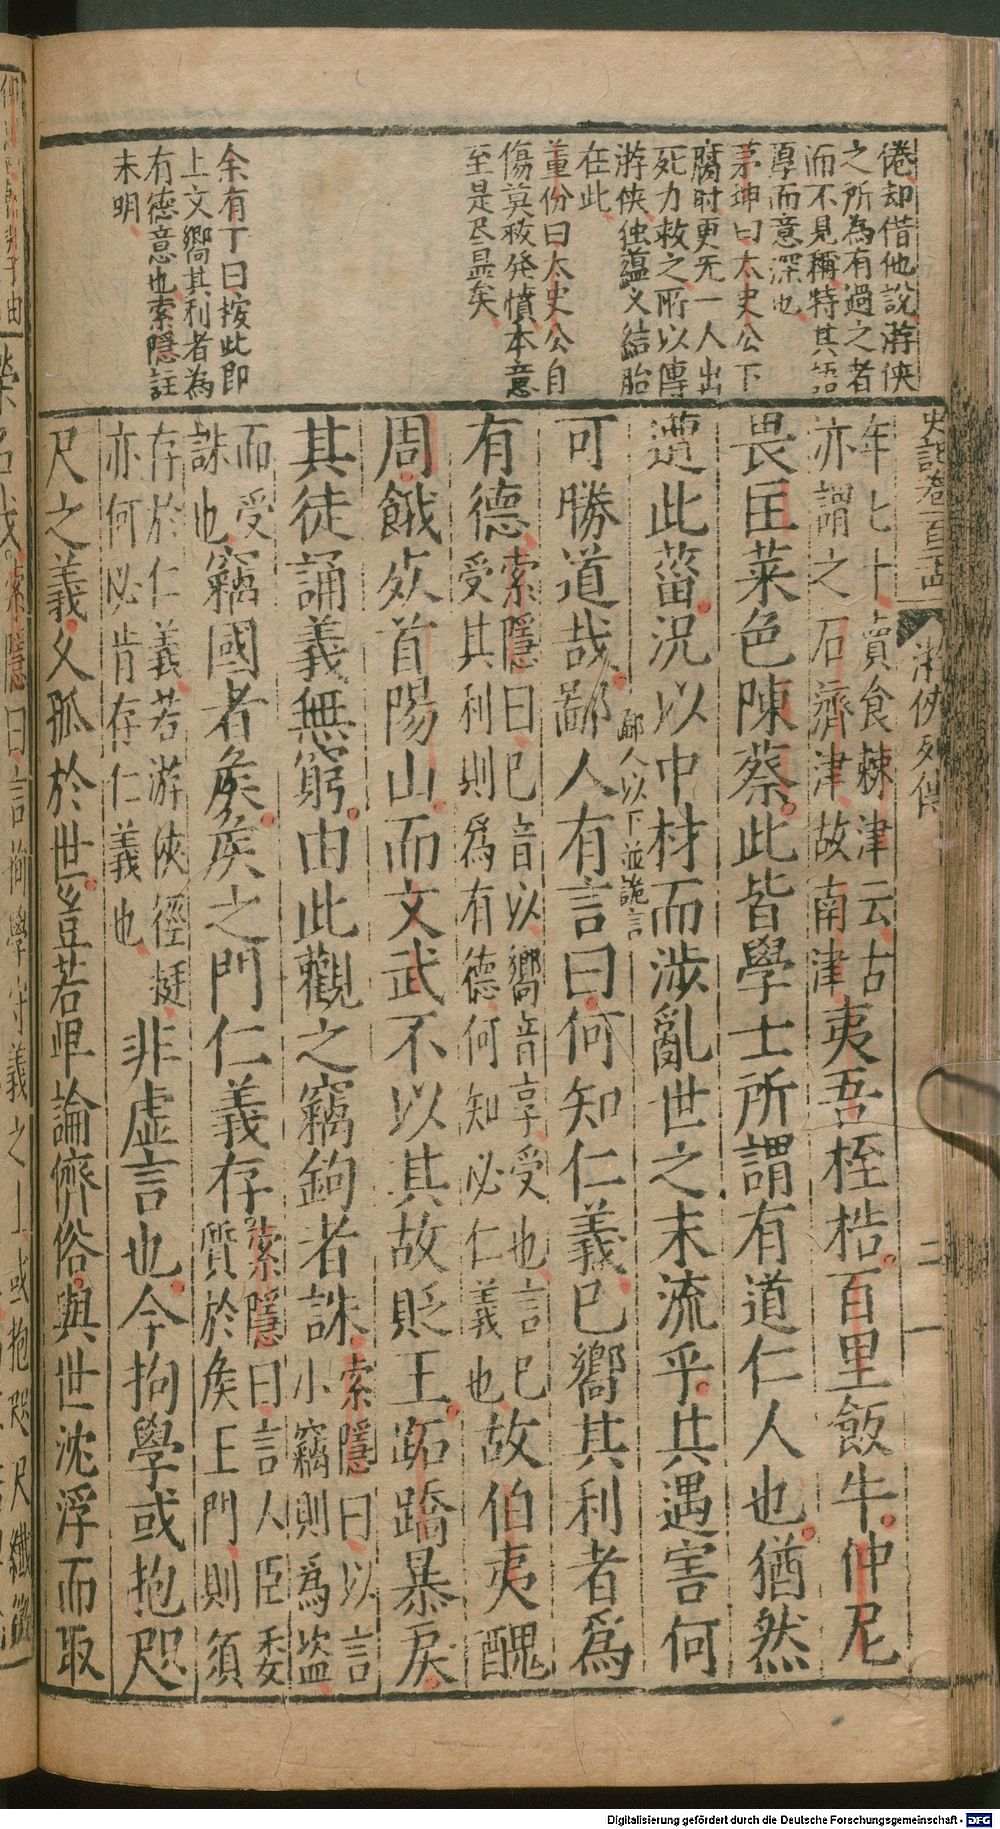 倦却借他說游俠
之所為有過之者
而不見稱特其語
厚而意深也
茅坤曰太史公下
腐時更无一人出
死力救之所以傳
游俠独蘊义結胎
在此
董份曰太史公自
傷莫救発憤本意
至是尽显矣
余有丁曰按此即
上文嚮其利者為
有德意也索隱註
未明
史記卷一百二十四
游俠列傳
二
年七十賣食棘津云古
亦謂之石濟津故南津
夷吾桎梏百里飯牛仲尼
畏匡菜色陳蔡此皆學士所謂有道仁人也猶然
遭此菑況以中材而涉亂世之末流乎其遇害何
可勝道哉鄙人有言曰何知仁義已嚮其利者爲
鄙人以下並詭言
有德
索隱曰已音以嚮音享受也言已
受其利則爲有德何知必仁義也
故伯夷醜
周餓死首陽山而文武不以其故貶王跖蹻暴戾
其徒誦義無窮由此觀之竊鉤者誅
索隱曰以言
小竊則爲盜
而受
誅也
竊國者矦矦之門仁義存
索隱曰言人臣委
質於矦王門則須
存於仁義若游俠徑挺
亦何必肯存仁義也
非虛言也今拘學或抱咫
尺之義久孤於世豈若卑論儕俗與世沈浮而取
榮名哉
索隱曰言拘學守義之士或抱咫尺纖微